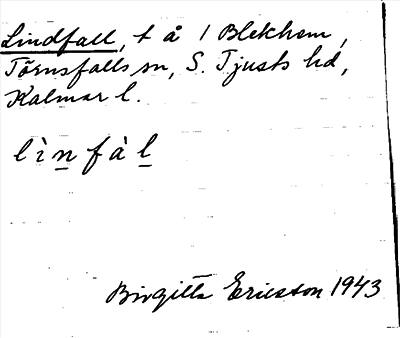 Lindfall, t å / Blekhem,
Törnsfalls sn, S. Tjusts hd,
Kalmar l.
lìnfàl
Birgitta Ericsson 1943